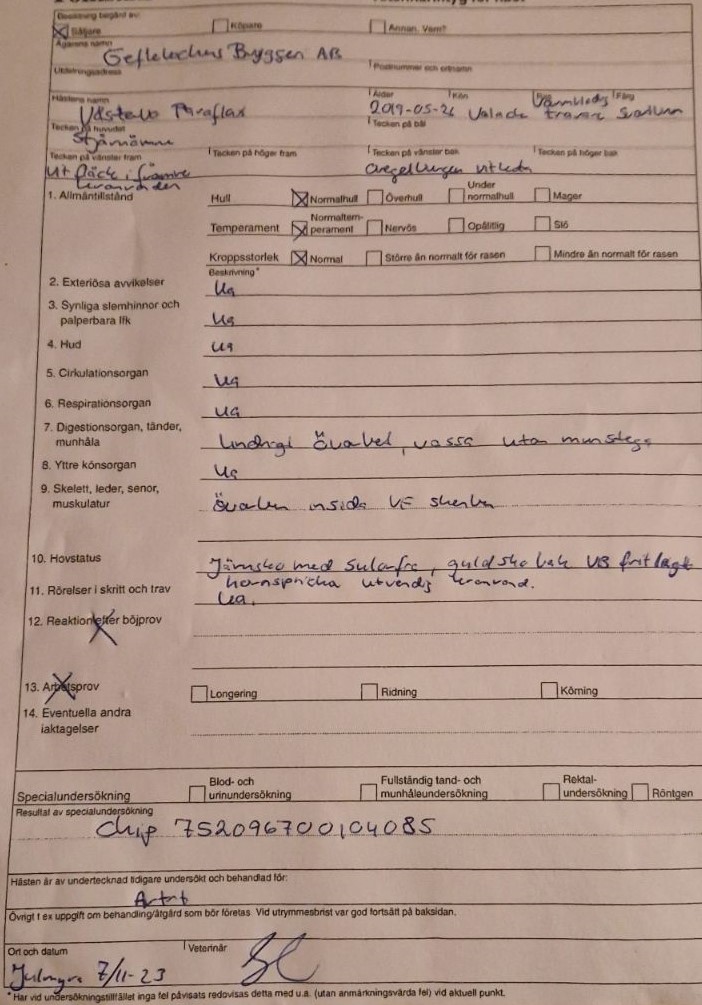 Besiktning begärd av:
Säljare Köpare Annan. Vem?
Ägarens namn
Bryggen AB
Utdelningsadress Postnummer och ortnamn
Hästens namn Ålder Kön Ras Färg
Paraflax 2019-05-26 Valack Varmblodig travare
Tecken på huvudet Tecken på bål
Stjärnämne
Tecken på vänster fram Tecken på höger fram Tecken på vänster bak Tecken på höger bak
vit fläck i främre kronranden oregelbunden vit
1. Allmäntillstånd Hull Normalhull Överhull Under normalhull Mager
Temperament Normaltem-perament Nervös Opålitlig Slö
Kroppsstorlek Normal Större än normalt för rasen Mindre än normalt för rasen
Beskrivning*
2. Exteriösa avvikelser ua
3. Synliga slemhinnor och palperbara lfk ua
4. Hud ua
5. Cirkulationsorgan ua
6. Respirationsorgan ua
7. Digestionsorgan, tänder, munhåla Lindrigt överbett, vassa utan
8. Yttre könsorgan ua
9. Skelett, leder, senor, muskulatur insida VF
10. Hovstatus Järnsko med fram, bak VB
hornspricka utvändig kronrand.
11. Rörelser i skritt och trav ua.
12. Reaktion efter böjprov
13. Arbetsprov Longering Ridning Körning
14. Eventuella andra iakttagelser
Specialundersökning Blod- och urinundersökning Fullständig tand- och munhåleundersökning Rektal-undersökning Röntgen
Resultat av specialundersökning
Chip 752096700104085
Hästen är av undertecknad tidigare undersökt och behandlad för:
Övrigt t ex uppgift om behandling/åtgärd som bör företas Vid utrymmesbrist var god fortsätt på baksidan.
Ort och datum Veterinär
7/11-23
*Har vid undersökningstillfället inga fel påvisats redovisas detta med u.a. (utan anmärkningsvärda fel) vid aktuell punkt.